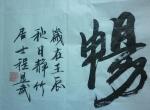 暢
歲在壬辰
秋日靜竹
居士程